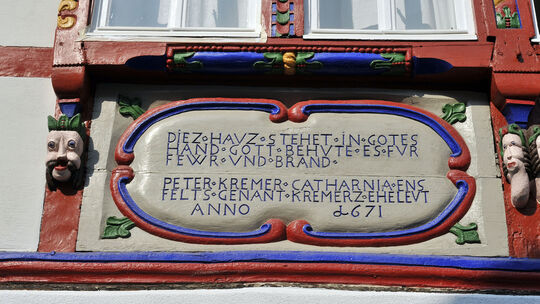 DIEZ·HAVZ·STEHET·IN·GOTES
HAND·GOTT·BEHVTE·ES·FVR
FEWR·VND·BRAND·
PETER·KREMER·CATHARNIA·ENS
FELTS·GENANT·KREMERZ·EHELEVT
ANNO 1671